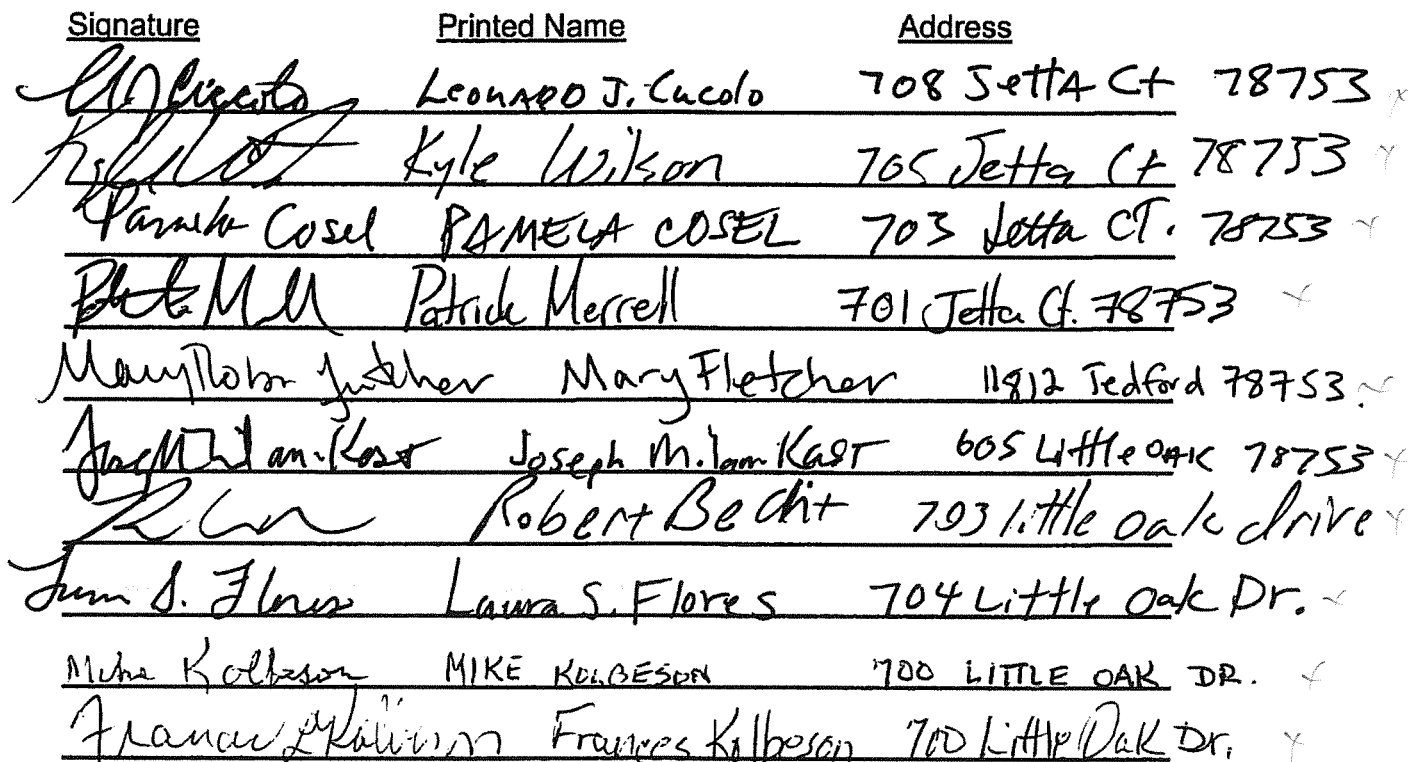 Signature Printed Name Address
Leonard J. Cucolo 708 Jetta Ct 78753
Kyle Wilson 705 Jetta Ct 78753
Pamela Cosel PAMELA COSEL 703 Jetta CT. 78753
Patrick Merrell 701 Jetta Ct. 78753
Mary Fletcher 11812 Tedford 78753
Joseph Milam Kast 605 Little OAK 78753
Robert Becht 703 little oak drive
S. Flores Laura S. Flores 704 Little Oak Dr.
Mike Kolbeson MIKE KOLBESON 700 LITTLE OAK DR.
Frances Kolbeson 700 Little Oak Dr.